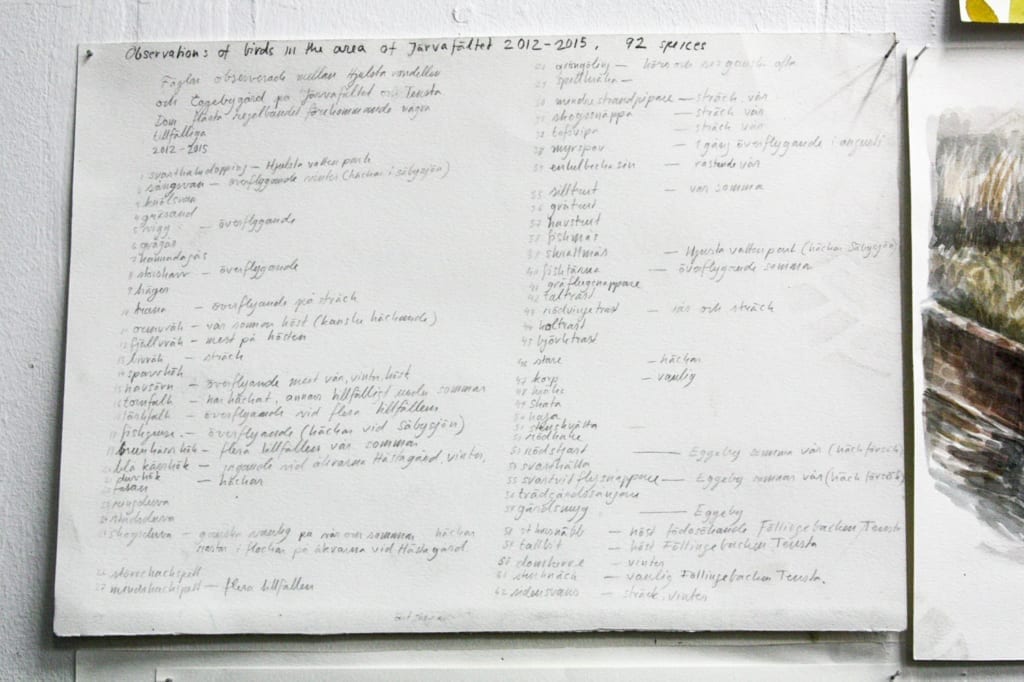 Observations of birds in the area of Järvafältet 2012-2015. 92 species
Fåglar observerade mellan Hjulsta
och Eggebygård på Järvafältet och Tensta
Dom flesta regelbundet förekommande några
tillfälliga
2012-2015
svarthakedopping - Hjulsta vatten park
sångsvan - överflygande vinter (häckar i säbysjön)
knölsvan
gräsand
vigg - överflygande
grågås
kanadagås
storskarv - överflygande
häger
trana - överflyande på sträck
ormvråk - vår sommar höst (kanske häckande)
fjällvråk - mest på hösten
- sträck
sparvhök
havsörn - överflyande mest vår, vinter, höst
tornfalk - har häckat, annars tillfälligt under sommar
lärkfalk - överflygande vid flera tillfällen
fiskgjuse - överflyande (häckar vid säbysjön)
brun kärrhök - flera tillfällen vår sommar
blå kärrhök - jagande vid åkrarna Hästa gård, vinter,
duvhök - häckar
fasan
ringduva
stadsduva
skogsduva - ganska vanlig på vår och sommar häckar
i flockar på åkrarna vid Hästa gård
27 mindrehackspett - flera tillfällen
gröngöling - hörs och ses ganska ofta
spillkråka -
mindre strandpipare - sträck vår
skogssnäppa - sträck vår
tofsvipa - sträck vår
myrspov - 1 gång överflygande i augusti
enkelbeckasin - rastande vår
35 silltrut - vår somma
36 gråtrut
37 havstrut
38 fiskmås
39 skrattmås - Hjusta vatten park (häckar Säbysjön)
40 fisktärna - överflygande somma
41 gråflugsnappare
42 taltrast
43 rödvingetrast - vår och sträck
44 koltrast
45 björktrast
46 stare - häckar
47 korp - vanlig
48 kråka
49 skata
50 kaja
51 stenskvätta
52 rödhake
53 rödstjärt - Eggeby somma vår (häck försök)
svarthätta
55 svartvit flugsnappare - Eggeby sommar vår (häck försök)
56 trädgårdssångare
gärdsmyg - Eggeby
58 st korsnäbb - höst födosökande Föllingebacken Tensta
59 tallbit - höst Föllingebacken Tensta
60 domherre - vinter
61 stenknäck - vanlig Föllingebacken Tensta.
62 sidensvans - sträck, vinter